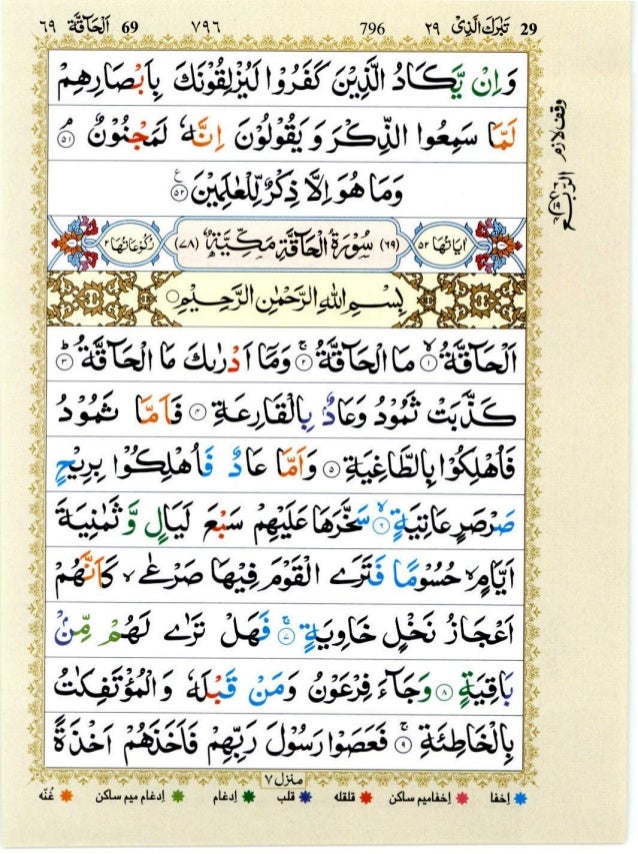 ٦٩ اَلْحَآقَّة 69 ٧٩٦ 796 ٢٩ تَبٰرَكَ الَّذِىْ 29
وَاِنْ يَّكَادُ الَّذِيْنَ كَفَرُوْا لَيُزْلِقُوْنَكَ بِاَبْصَارِهِمْ
لَمَّا سَمِعُوا الذِّكْرَ وَيَقُوْلُوْنَ اِنَّهٗ لَمَجْنُوْنٌ ۘ ٥١
وَمَا هُوَ اِلَّا ذِكْرٌ لِّلْعٰلَمِيْنَ ٥٢ ع
وقف لازم
الرّبع
اٰيَاتُهَا ٥٢ (٦٩) سُوْرَةُ الْحَآقَّةِ مَكِّيَّةٌ (٧٨) رُكُوْعَاتُهَا ٢
بِسْمِ اللهِ الرَّحْمٰنِ الرَّحِيْمِ
اَلْحَآقَّةُ ۙ ١ مَا الْحَآقَّةُ ۚ ٢ وَمَآ اَدْرٰىكَ مَا الْحَآقَّةُ ؕ ٣
كَذَّبَتْ ثَمُوْدُ وَعَادٌۢ بِالْقَارِعَةِ ٤ فَاَمَّا ثَمُوْدُ
فَاُهْلِكُوْا بِالطَّاغِيَةِ ٥ وَاَمَّا عَادٌ فَاُهْلِكُوْا بِرِيْحٍ
صَرْصَرٍ عَاتِيَةٍ ۙ ٦ سَخَّرَهَا عَلَيْهِمْ سَبْعَ لَيَالٍ وَّثَمٰنِيَةَ
اَيَّامٍ ۙ حُسُوْمًا فَتَرَى الْقَوْمَ فِيْهَا صَرْعٰى ۙ كَاَنَّهُمْ
اَعْجَازُ نَخْلٍ خَاوِيَةٍ ۚ ٧ فَهَلْ تَرٰى لَهُمْ مِّنْۢ
بَاقِيَةٍ ٨ وَجَآءَ فِرْعَوْنُ وَمَنْ قَبْلَهٗ وَالْمُؤْتَفِكٰتُ
بِالْخَاطِئَةِ ۚ ٩ فَعَصَوْا رَسُوْلَ رَبِّهِمْ فَاَخَذَهُمْ اَخْذَةً
منزل ٧
اِخفا اِخفامیم ساکن قلقله قلب اِدغام اِدغام میم ساکن غُنّه